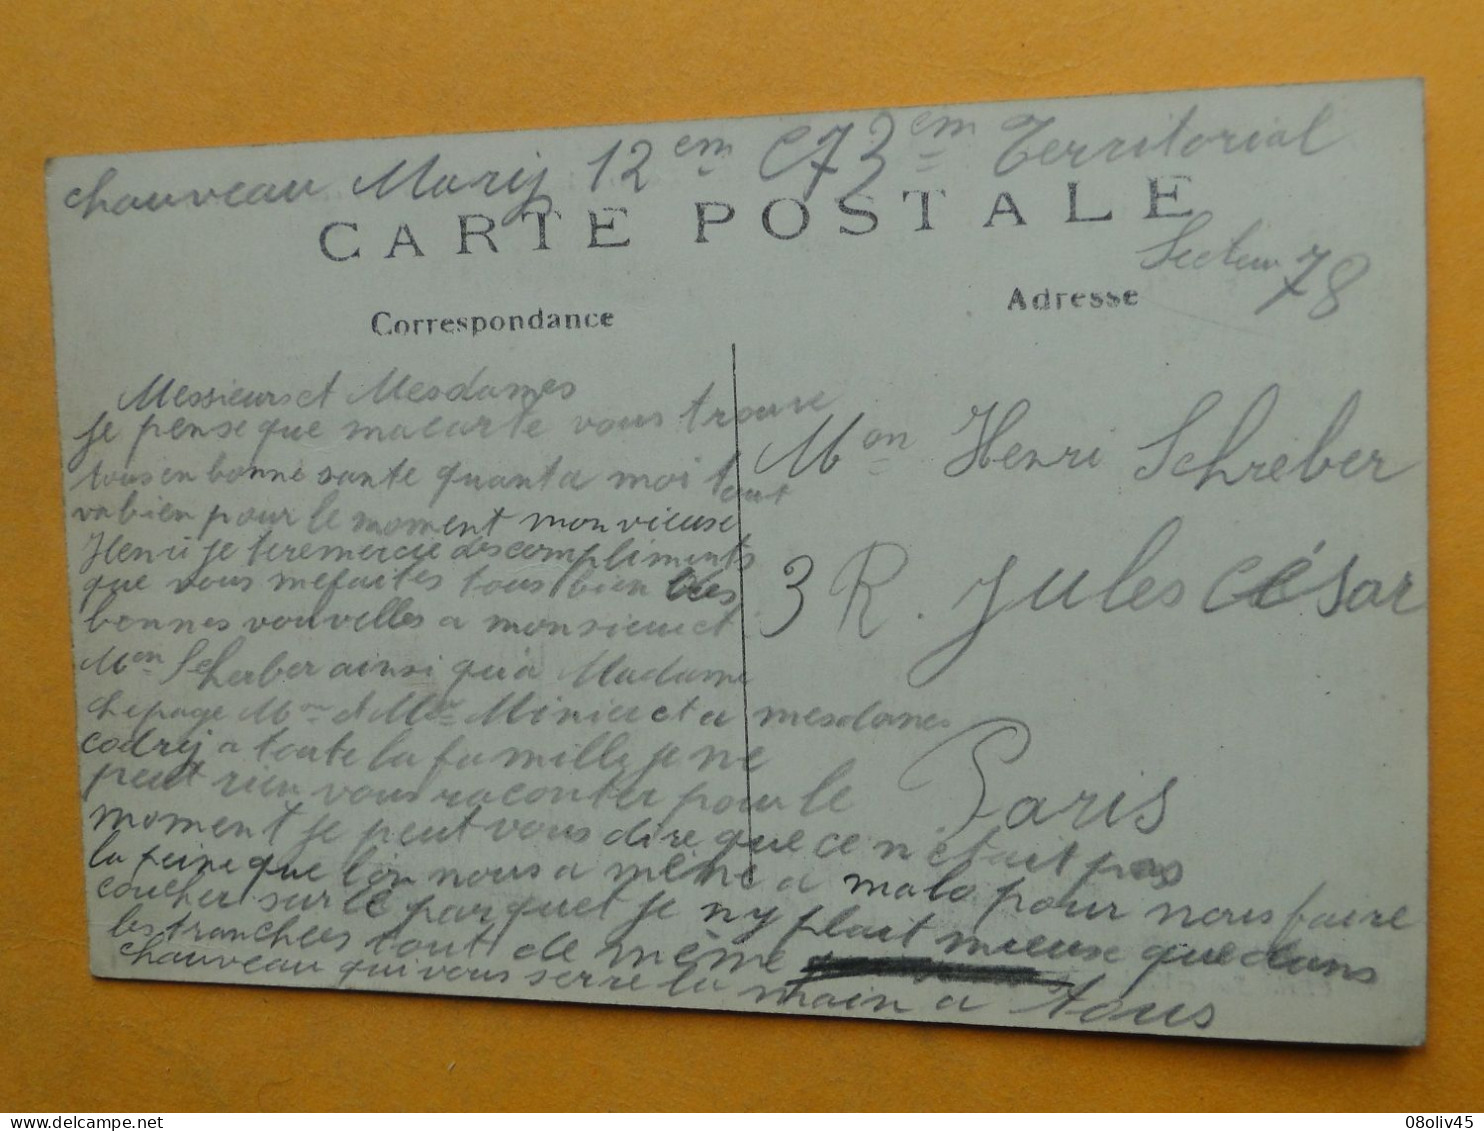 chauveau Marij 12 em C 73 em Territorial
CARTE POSTALE
Secteur 78
Correspondance
Adresse
Messieurs et Mesdames
je pense que ma carte vous trouve
tous en bonne sante quant a moi tout
va bien pour le moment mon vieuse
Henri je te remercie des compliments
que vous me faites tous bien des
bonnes nouvelles a monsieur et
Mon Scherber ainsi qu'a Madame
chepage Mr et Mme Minier et a mesdames
codrij a toute la famille je ne
peut rien vous raconter pour le
moment je peut vous dire que ce n'etait pas
la peine que l'on nous a mêné a malo pour nous faire
coucher sur le parquet je n'y plait mieuse que dans
les tranchees tout de même
chauveau qui vous serre la main a tous
Mon Henri Schreber
3 R. Jules César
Paris
delcampe.net
08oliv45